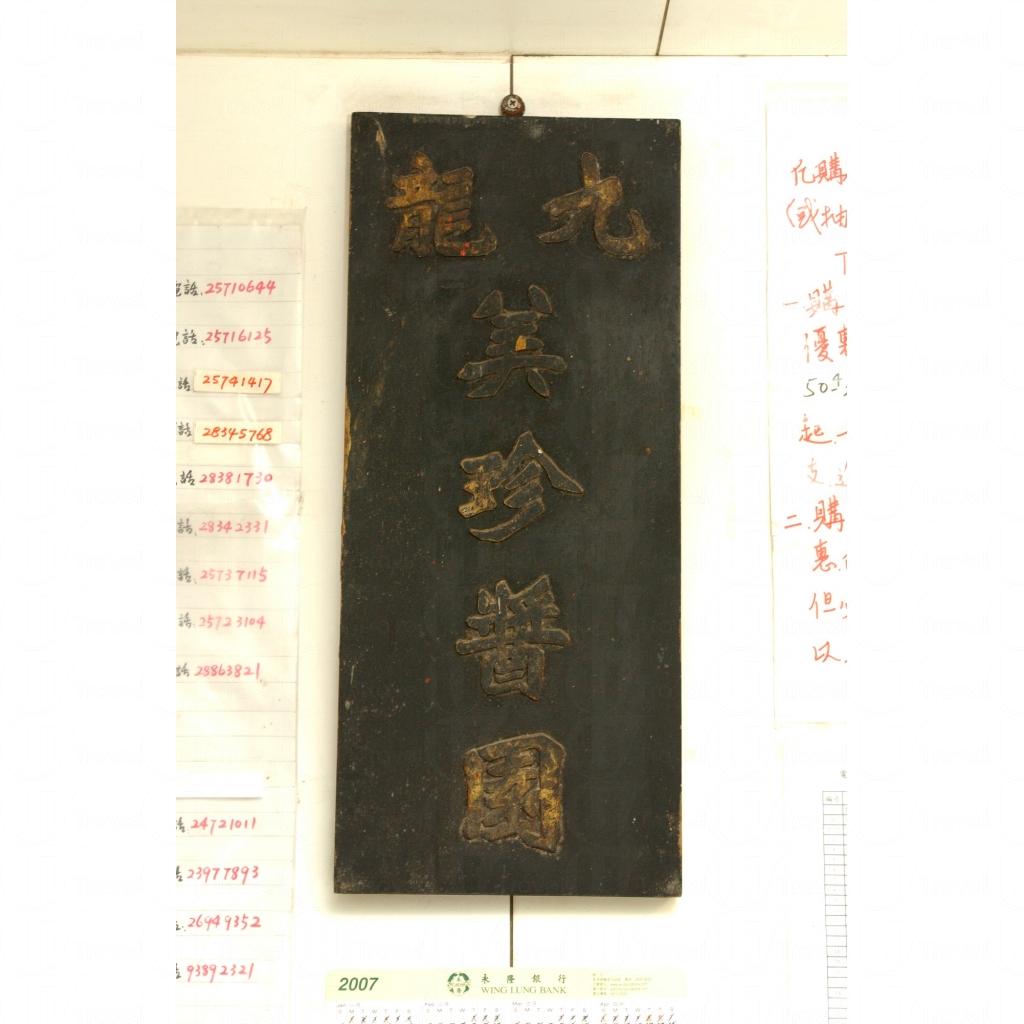 九龍
美珍醬園
電話.25710644
話.25716125
話 25741417
話 28345768
話 28381730
話.28342331
話.25737115
話.25723104
話 28863821
24721011
23977893
26949352
93892321
凡購
(或抽
一.購
優惠
50
起.一
支
二.購
惠.
但
以.
2007
永隆銀行
WING LUNG BANK